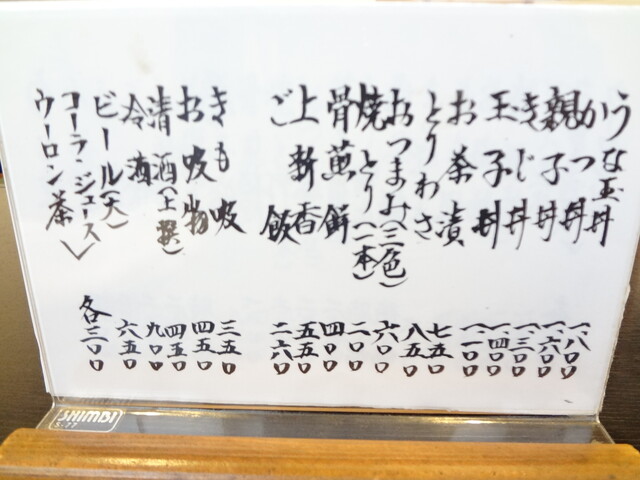 うな玉丼 一、八〇〇
かつ丼 一、六〇〇
親子丼 一、三〇〇
きじ丼 一、四〇〇
玉子丼 一、一〇〇
お茶漬 七五〇
とりわさ 八五〇
おつまみ(三色) 六〇〇
焼とり(一本) 二〇〇
骨煎餅 四〇〇
上新香 五五〇
ご飯 二六〇
きも吸 三五〇
お吸物 四五〇
清酒(上撰) 四五〇
冷酒 九〇〇
ビール(大) 六五〇
コーラ・ジュース
ウーロン茶 各三〇〇
SHIMBI